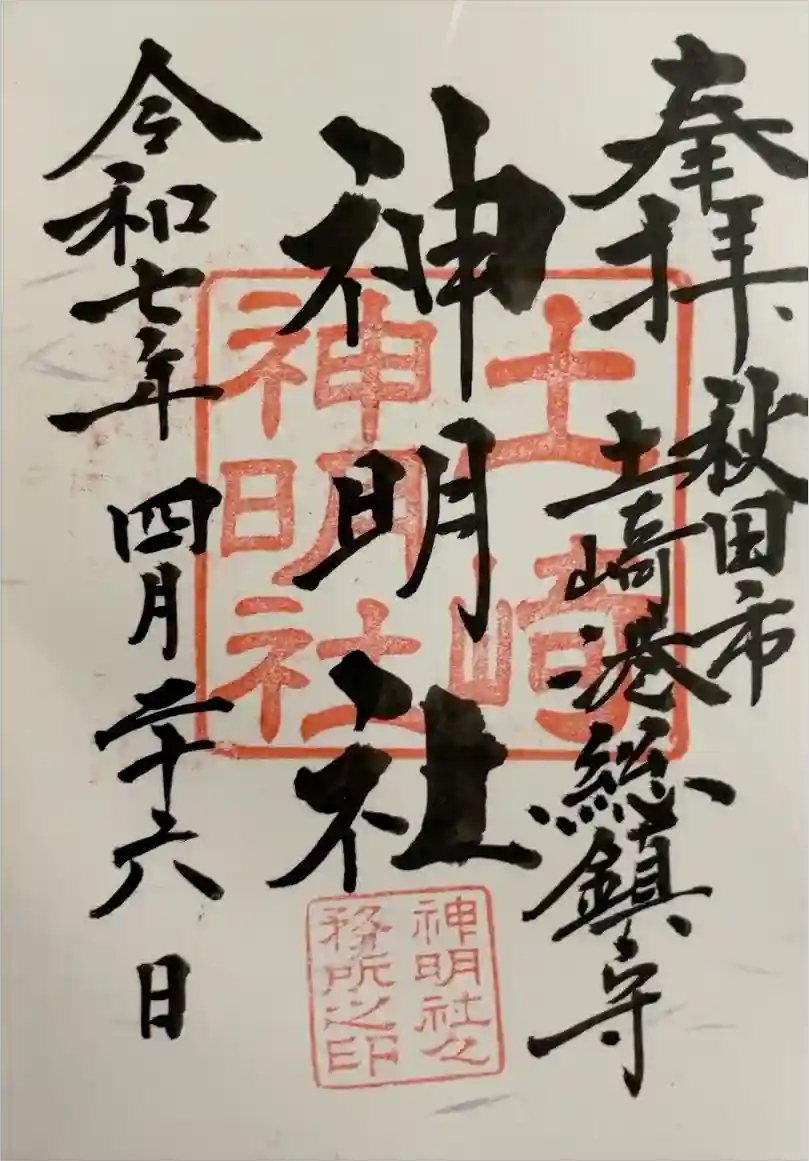 奉拝、
秋田市
土崎港総鎮守
神明社
土崎
神明社
神明社之
務所之印
令和七年 四月二十六日